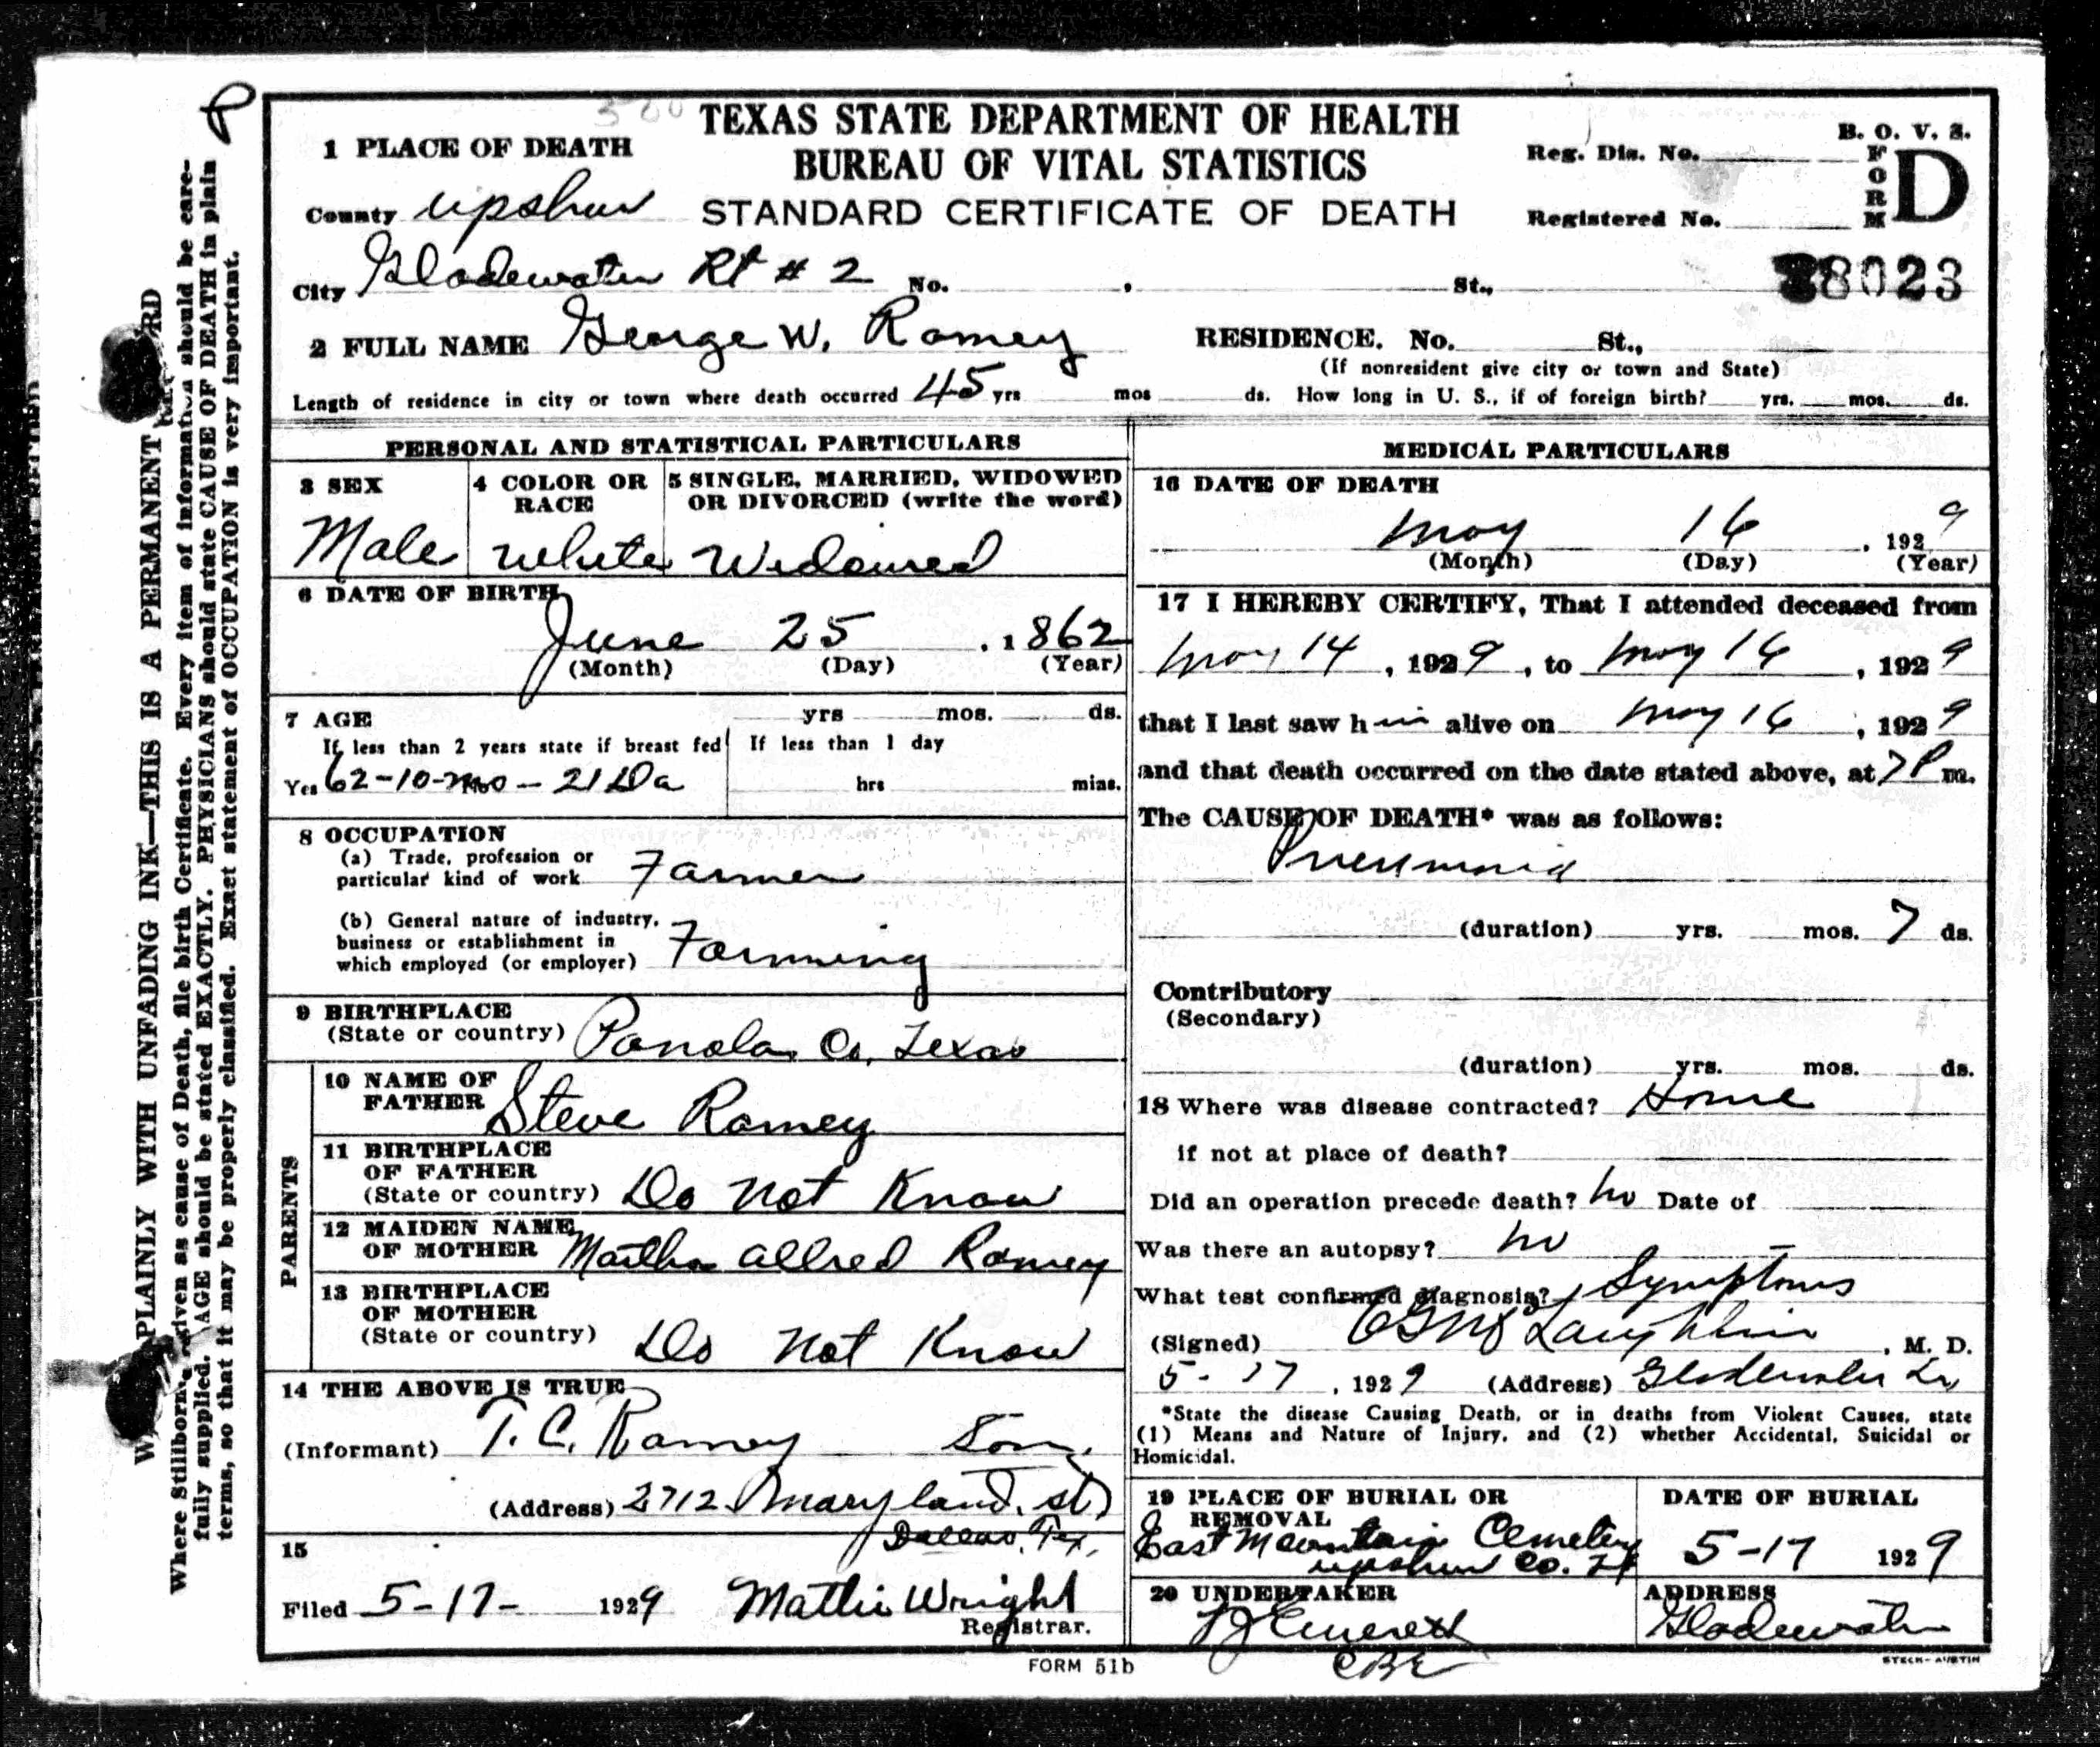 TEXAS STATE DEPARTMENT OF HEALTH
BUREAU OF VITAL STATISTICS
STANDARD CERTIFICATE OF DEATH
B. O. V. S.
FORM D
Reg. Dis. No.
Registered No.
8023
1 PLACE OF DEATH
County Upshur
City Gladewater Rt # 2 No. St.,
2 FULL NAME George W. Ramey RESIDENCE. No. St.,
(If nonresident give city or town and State)
Length of residence in city or town where death occurred 45 yrs mos ds. How long in U. S., if of foreign birth? yrs. mos. ds.
PERSONAL AND STATISTICAL PARTICULARS
3 SEX
Male
4 COLOR OR RACE
White
5 SINGLE, MARRIED, WIDOWED
OR DIVORCED (write the word)
Widowed
6 DATE OF BIRTH
June 25 . 1862
(Month) (Day) (Year)
7 AGE yrs mos. ds.
If less than 2 years state if breast fed If less than 1 day
Yes 62-10-mo-21 Da hrs mins.
8 OCCUPATION
(a) Trade, profession or
particular kind of work Farmer
(b) General nature of industry,
business or establishment in
which employed (or employer) Farming
9 BIRTHPLACE
(State or country) Panola Co, Texas
PARENTS
10 NAME OF
FATHER Steve Ramey
11 BIRTHPLACE
OF FATHER
(State or country) Do Not Know
12 MAIDEN NAME
OF MOTHER Martha Allred Ramey
13 BIRTHPLACE
OF MOTHER
(State or country) Do Not Know
14 THE ABOVE IS TRUE
(Informant) T. C. Ramey Son.
(Address) 2712 Maryland. St
Dallas, Tex,
15
Filed 5-17- 1929 Mattie Wright
Registrar.
MEDICAL PARTICULARS
16 DATE OF DEATH
May 16 , 1929
(Month) (Day) (Year)
17 I HEREBY CERTIFY, That I attended deceased from
May 14 , 1929 , to May 16 , 1929
that I last saw him alive on May 16 , 1929
and that death occurred on the date stated above, at 7 P m.
The CAUSE OF DEATH* was as follows:
Pneumonia
(duration) yrs. mos. 7 ds.
Contributory
(Secondary)
(duration) yrs. mos. ds.
18 Where was disease contracted? Home
if not at place of death?
Did an operation precede death? no Date of
Was there an autopsy? no
What test confirmed diagnosis? Symptoms
(Signed) McLaughlin , M. D.
5-17 , 1929 (Address) Gladewater Tx
*State the disease Causing Death, or in deaths from Violent Causes, state
(1) Means and Nature of Injury, and (2) whether Accidental, Suicidal or
Homicidal.
19 PLACE OF BURIAL OR
REMOVAL
East Mountain Cemetery
Upshur Co. Tx
DATE OF BURIAL
5-17 1929
20 UNDERTAKER
Everett
CBE
ADDRESS
Gladewater
FORM 51b
STECK-AUSTIN
PLAINLY WITH UNFADING INK—THIS IS A PERMANENT
Where Stillborn is given as cause of Death, file birth Certificate. Every item of information should be care-
fully supplied. AGE should be stated EXACTLY. PHYSICIANS should state CAUSE OF DEATH in plain
terms, so that it may be properly classified. Exact statement of OCCUPATION is very important.